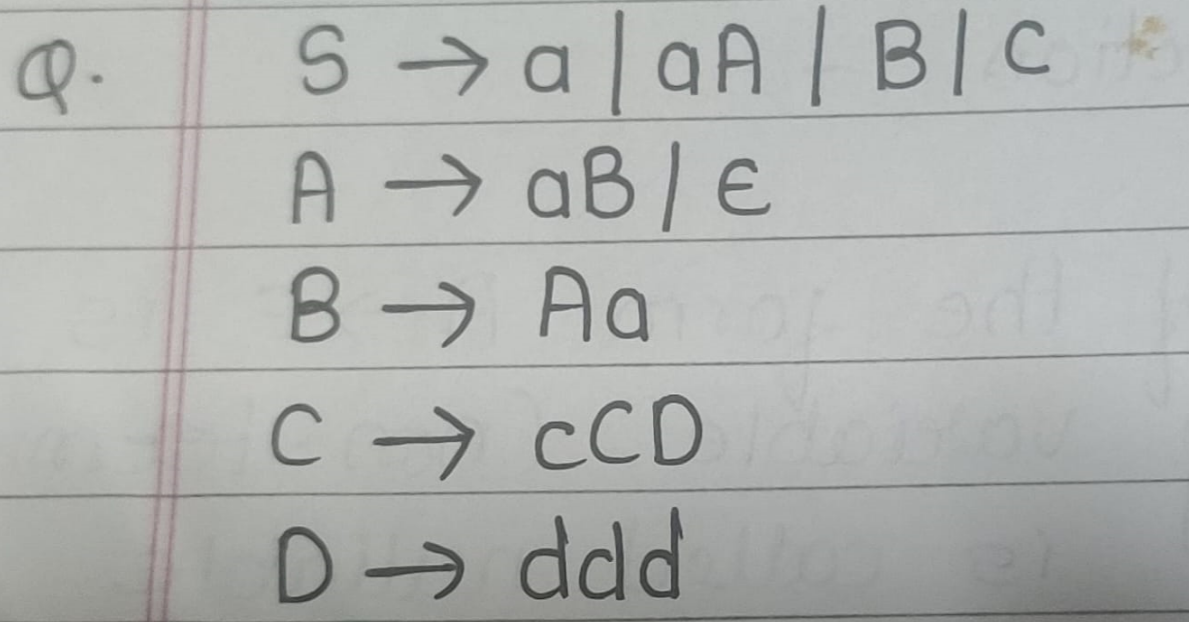 Q. S → a | aA | B | C
A → aB | ϵ
B → Aa
C → cCD
D → ddd